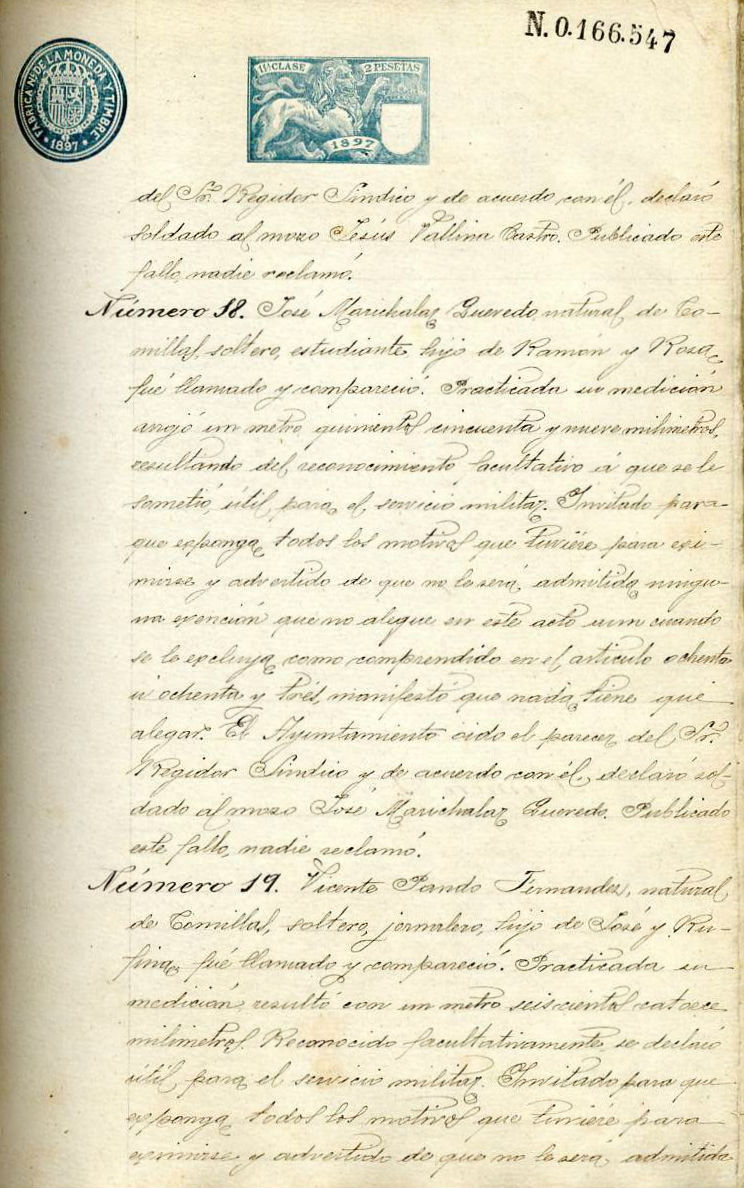 N. 0.166.547
FABRICA Nal DE LA MONEDA Y TIMBRE
1897
11ª CLASE 2 PESETAS
1897
del Sr. Regidor Síndico y de acuerdo con él, declaró
soldado al mozo Jesús Vallina Castro. Publicado este
fallo, nadie reclamó.
Número 18. José Marichalar Quevedo, natural de Co-
millas, soltero, estudiante hijo de Ramón y Rosa,
fué llamado y compareció. Practicada su medición
arrojó un metro quinientos cincuenta y nueve milimetros,
resultando del reconocimiento facultativo á que se le
sometió, útil para el servicio militar. Invitado para
que exponga todos los motivos que tuviére para exi-
mirse y advertido de que no le será admitida ningu-
na exención que no alegue en este acto aun cuando
se le excluya como comprendido en el artículo ochenta
ú ochenta y trés, manifestó que nada tiene que
alegar. El Ayuntamiento oido el parecer del Sr.
Regidor Síndico y de acuerdo con él, declaró sol-
dado al mozo José Marichalar Quevedo. Publicado
este fallo, nadie reclamó.
Número 19. Vicente Pando Fernandez, natural
de Comillas, soltero, jornalero, hijo de José y Ru-
fina, fué llamado y compareció. Practicada su
medición, resultó con un metro seiscientos catorce
milimetros. Reconocido facultativamente, se declaró
útil para el servicio militar. Invitado para que
exponga todos los motivos que tuviére para
eximirse y advertido de que no le será admitida